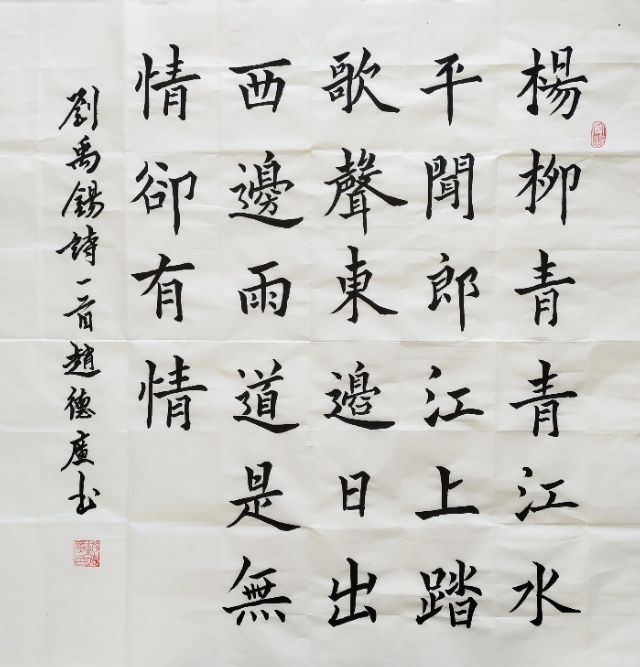 楊柳青青江水
平聞郎江上踏
歌聲東邉日出
西邊雨道是無
情卻有情
劉禹錫詩一首趙德廬书